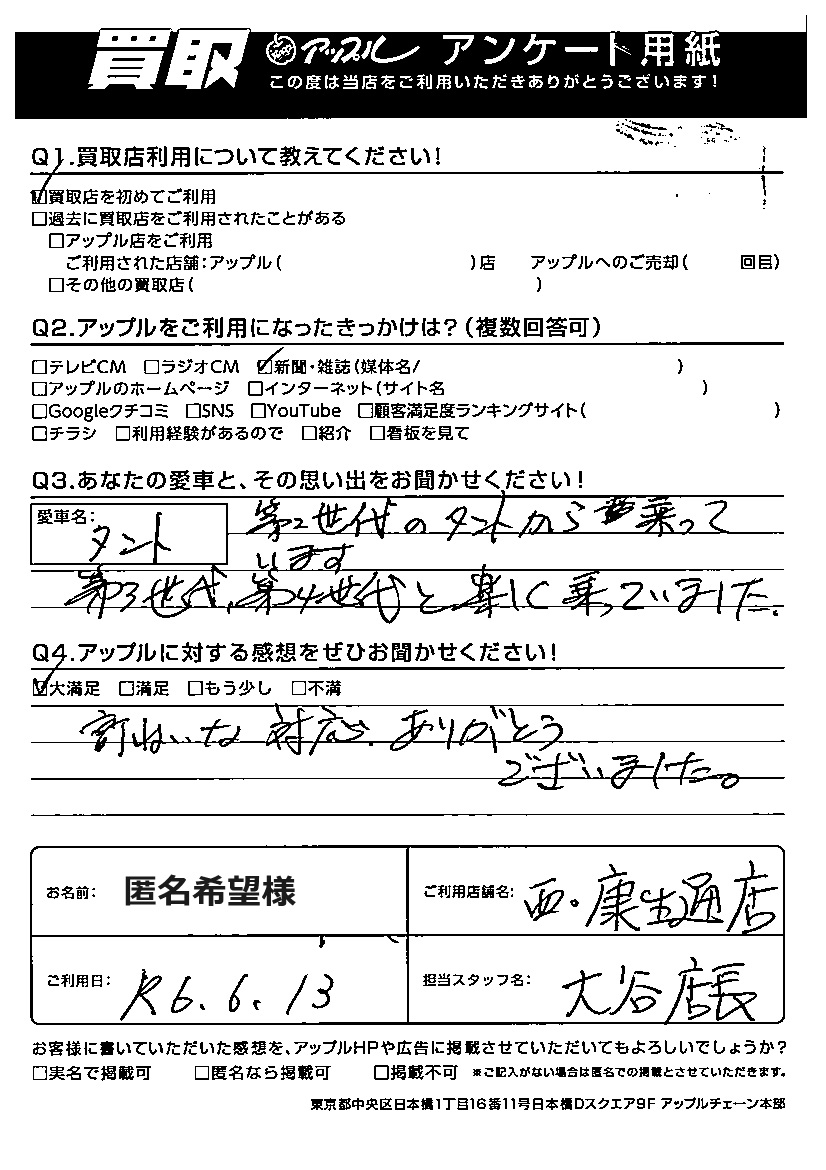 買取 アップル アンケート用紙
この度は当店をご利用いただきありがとうございます!
Q1.買取店利用について教えてください!
☑買取店を初めてご利用
□過去に買取店をご利用されたことがある
□アップル店をご利用
ご利用された店舗:アップル( )店 アップルへのご売却( 回目)
□その他の買取店( )
Q2.アップルをご利用になったきっかけは?(複数回答可)
□テレビCM □ラジオCM ☑新聞・雑誌(媒体名/ )
□アップルのホームページ □インターネット(サイト名 )
□Googleクチコミ □SNS □YouTube □顧客満足度ランキングサイト( )
□チラシ □利用経験があるので □紹介 □看板を見て
Q3.あなたの愛車と、その思い出をお聞かせください!
愛車名: タント 第2世代のタントから乗って
います
第3世代、第4世代と楽しく乗っていました.
Q4.アップルに対する感想をぜひお聞かせください!
☑大満足 □満足 □もう少し □不満
対応、ありがとう
ございました。
お名前: 匿名希望様 ご利用店舗名: 西・康生通店
ご利用日: R6.6.13 担当スタッフ名: 大谷店長
お客様に書いていただいた感想を、アップルHPや広告に掲載させていただいてもよろしいでしょうか?
□実名で掲載可 □匿名なら掲載可 □掲載不可 ※ご記入がない場合は匿名での掲載とさせていただきます。
東京都中央区日本橋1丁目16番11号日本橋Dスクエア9F アップルチェーン本部